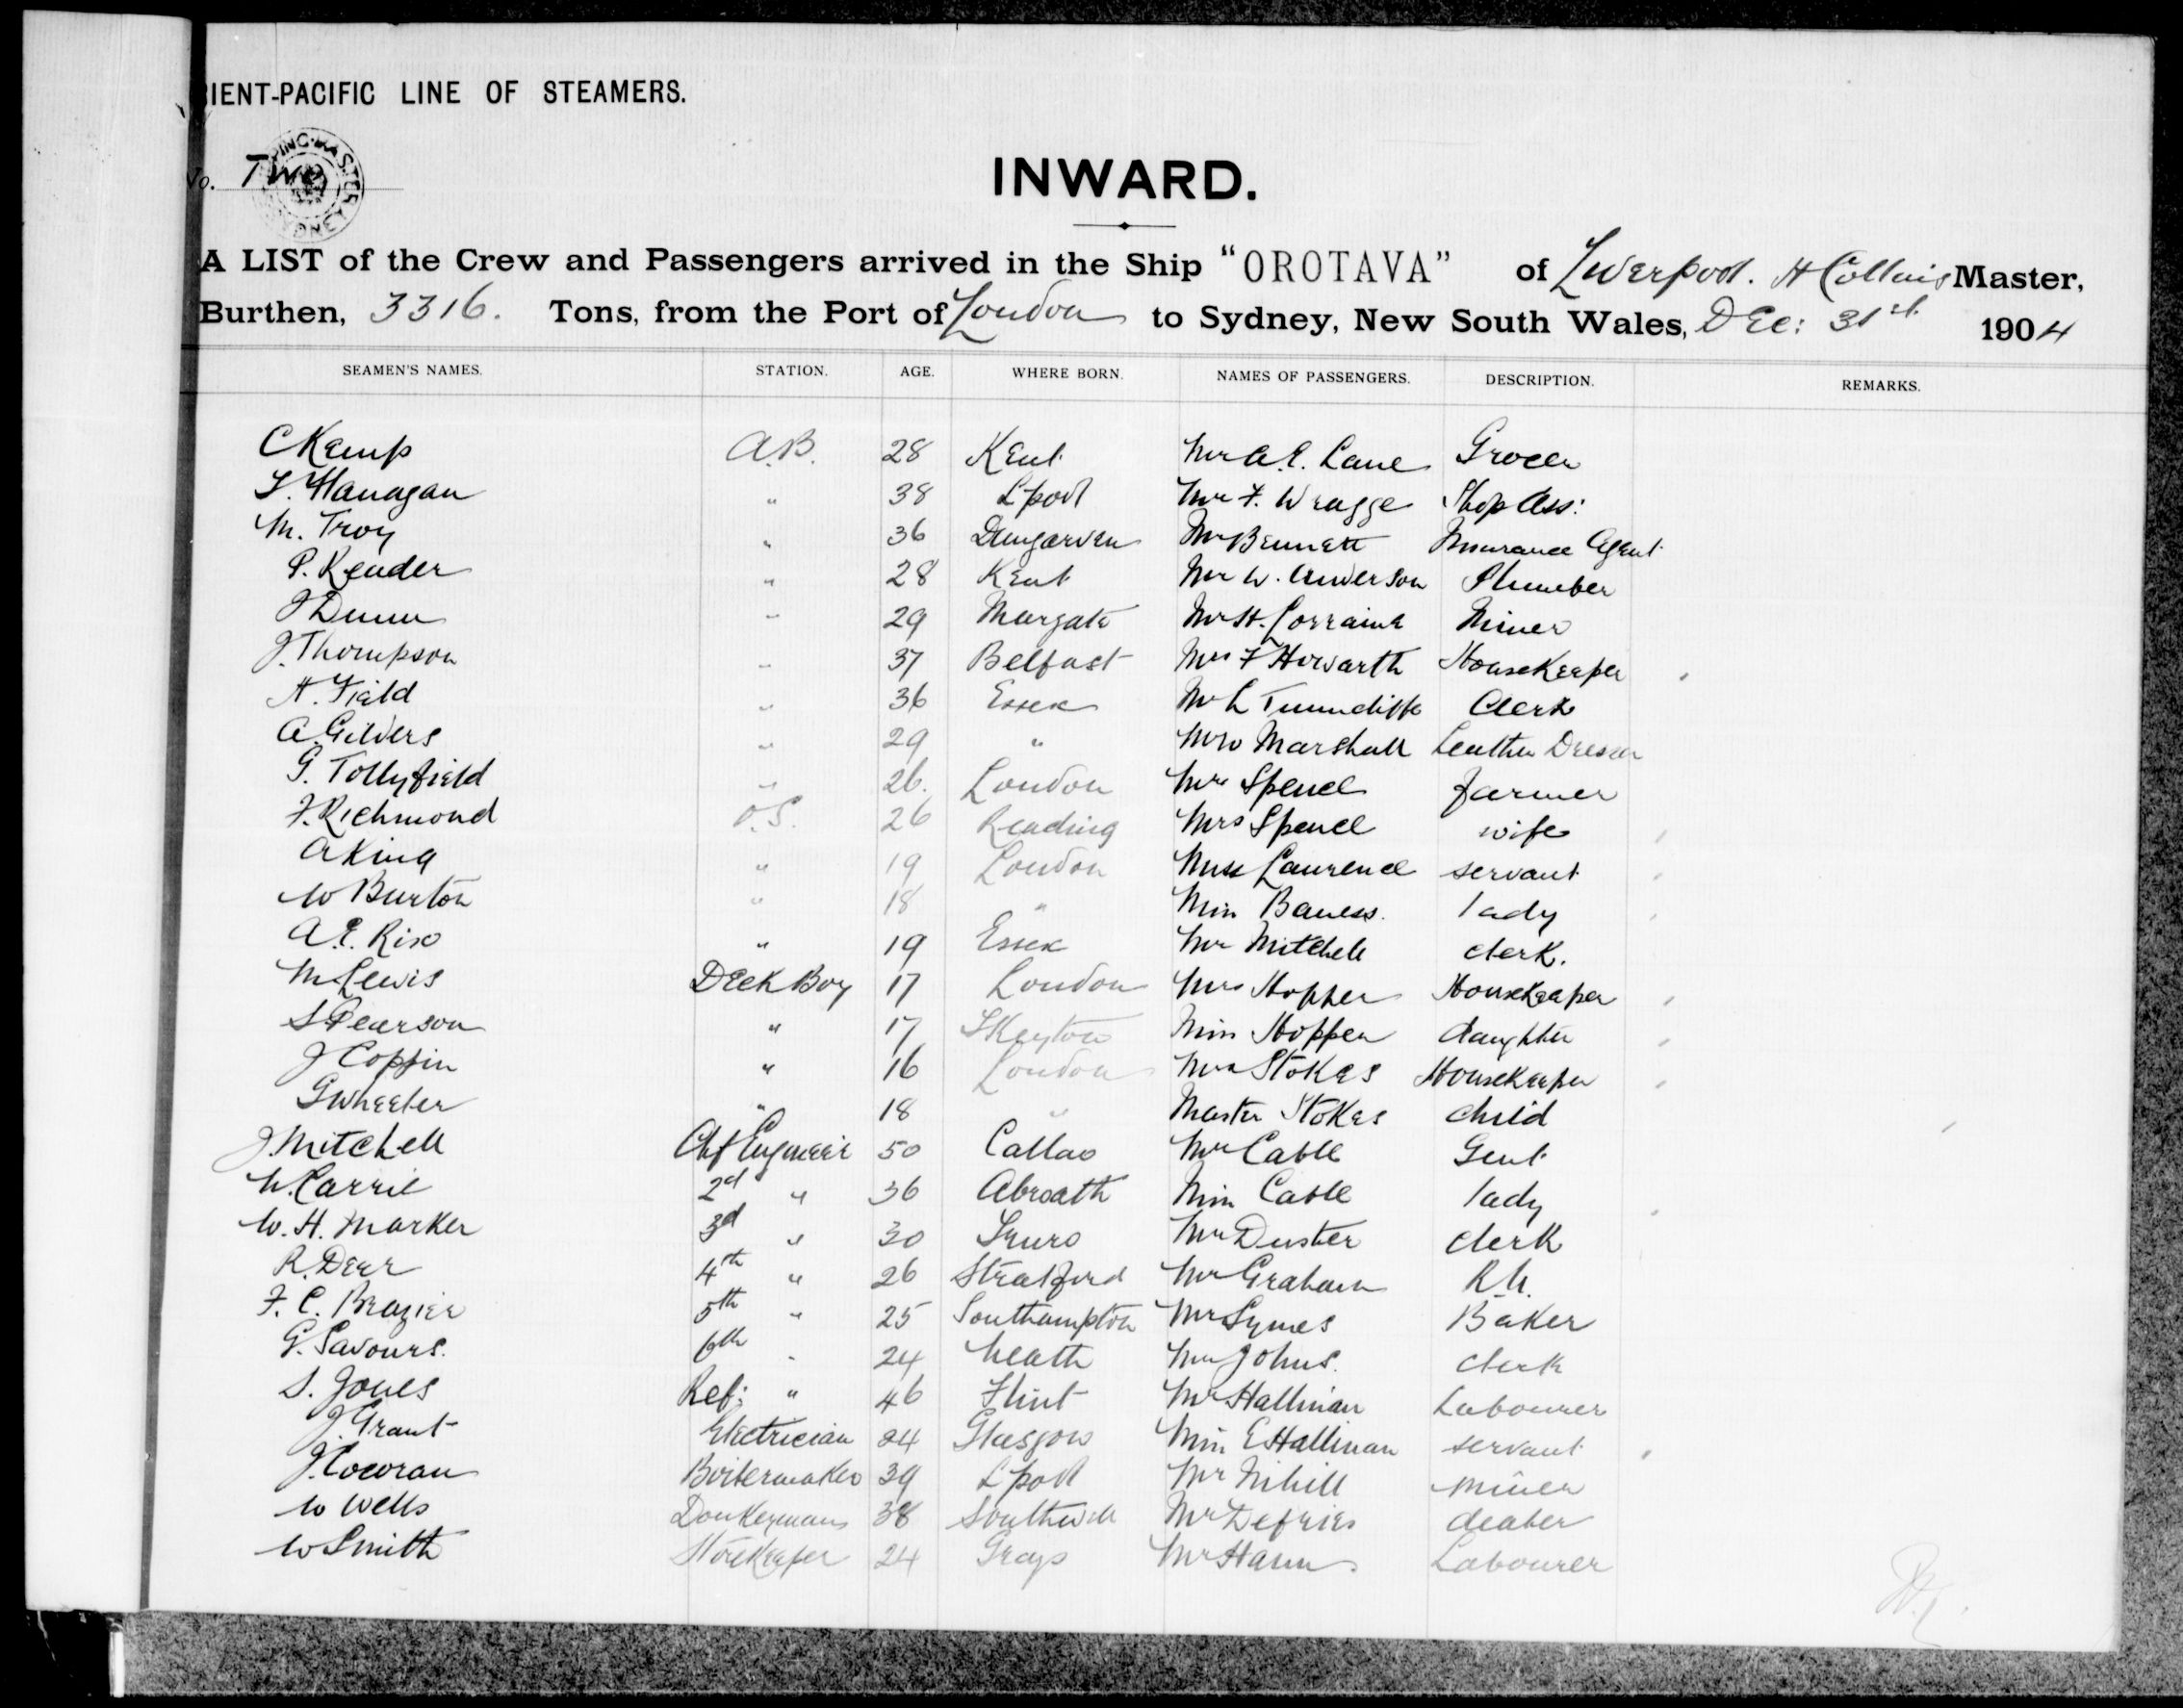 RIENT-PACIFIC LINE OF STEAMERS.
No. Two
INWARD.
A LIST of the Crew and Passengers arrived in the Ship "OROTAVA" of Liverpool. H Collins Master,
Burthen, 3316. Tons, from the Port of London to Sydney, New South Wales, DEc: 31st 1904
SEAMEN'S NAMES. STATION. AGE. WHERE BORN. NAMES OF PASSENGERS. DESCRIPTION. REMARKS.
C Kemp A.B. 28 Kent Mr A.E. Lane Grocer
Flanagan " 38 Lpool Mr F. Wragge Shop Ass:
M. Troy " 36 Dungarven Mr Bennett Insurance Agent
P. Render " 28 Kent Mr W. Anderson Plumber
J Dunn " 29 Margate Mr H. Lorraine Miner
J. Thompson " 37 Belfast Mrs F Howarth Housekeeper
H. Field " 36 Essex Mr L Tunncliffe Clerk
A. Gilders " 29 " Mr W Marshall Leather Dresser
G. Tollyfield " 26. London Mr Spence farmer
F. Richmond O.S. 26 Reading Mrs Spence wife
A King " 19 London Miss Laurence servant
W Burton " 18 " Miss Baness. lady
A.E. Rix " 19 Essex Mr Mitchell clerk.
M Lewis Deck Boy 17 London Mrs Hopper Housekeeper
S Pearson " 17 Miss Hopper daughter
J Coppin " 16 London Mrs Stokes Housekeeper
G Wheeler " 18 " Master Stokes child
J. Mitchell Chf Engineer 50 Callao Mr Cable Gent
W. Carrie 2nd " 36 Abroath Miss Cable lady
W. H. Marker 3d " 30 Truro Mr Duster clerk
R. Dear 4th " 26 Stratford Mr Graham R.N.
F. C. Brazier 5th " 25 Southampton Mr Symes Baker
G. Savours. 6th " 24 Neath Mr Johns. clerk
S. Jones Ref: " 46 Flint Mr Hallinan Labourer
J. Grant Electrician 24 Glasgow Miss E Hallinan servant
J. Cocoran Boilermaker 39 Lpool Mr Nihill miner
W Wells Donkeyman 38 Southwell Mr Defries dealer
W Smith Storekeeper 24 Grays Mr Hann Labourer